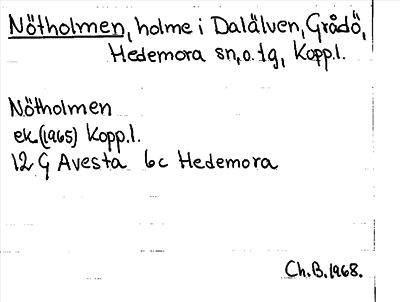 Nötholmen, holme i Dalälven, Grådö,
Hedemora sn, o. tg, Kopp.l.
Nötholmen
ek. (1965) Kopp.l.
12 G Avesta 6c Hedemora
Ch.B. 1968.